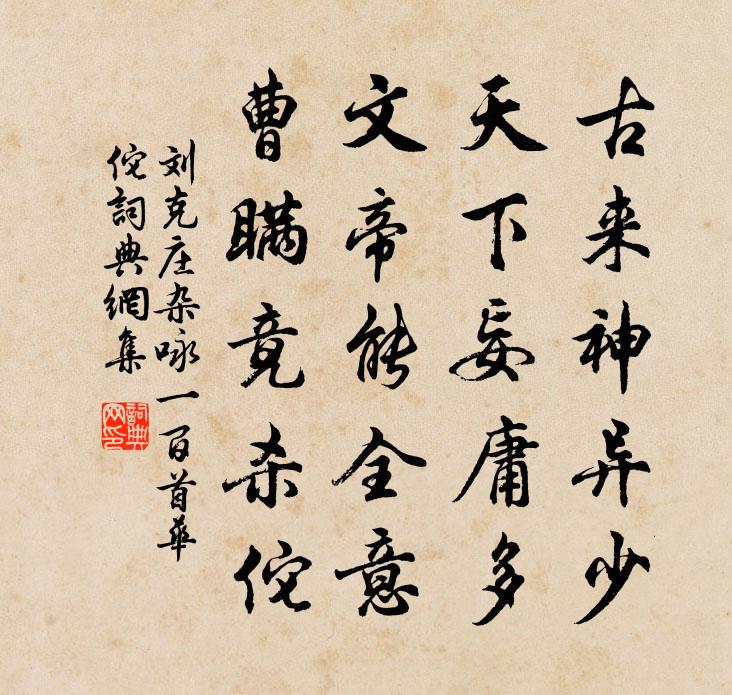 古来神异少
天下妄庸多
文帝能全意
曹瞒竟杀佗
刘克庄杂咏一百首華
佗詞典網集
詞典
网印